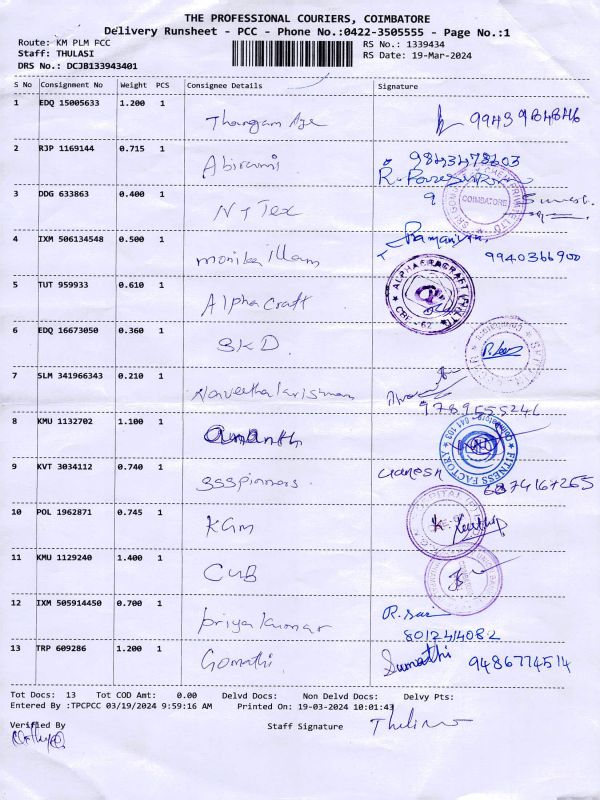 THE PROFESSIONAL COURIERS, COIMBATORE
Delivery Runsheet - PCC - Phone No.:0422-3505555 - Page No.:1
Route: KM PLM PCC
RS No.: 1339434
Staff: THULASI
RS Date: 19-Mar-2024
DRS No.: DCJB133943401
S No Consignment No Weight PCS Consignee Details Signature
1 EDQ 15005633 1.200 1 Thangam
2 RJP 1169144 0.715 1 Abirami 9843478603
3 DDG 633863 0.400 1 N T Tex COIMBATORE
4 IXM 506134548 0.500 1 monika illam 9940366900
5 TUT 959933 0.610 1 Alpha Craft ALPHACRAFT CBE - 67
6 EDQ 16673050 0.360 1 SKD
7 SLM 341966343 0.210 1 Naveethakrishnan
8 KMU 1132702 1.100 1 ananth FITNESS FACTORY
9 KVT 3034112 0.740 1 3SSpinners Ganesh
10 POL 1962871 0.745 1 KGM
11 KMU 1129240 1.400 1 CUB
12 IXM 505914450 0.700 1 Priya kumar R. Sai
13 TRP 609286 1.200 1 Gomathi Sumathi 9486774514
Tot Docs: 13 Tot COD Amt: 0.00 Delvd Docs: Non Delvd Docs: Delvy Pts:
Entered By :TPCPCC 03/19/2024 9:59:16 AM Printed On: 19-03-2024 10:01:43
Verified By
Staff Signature